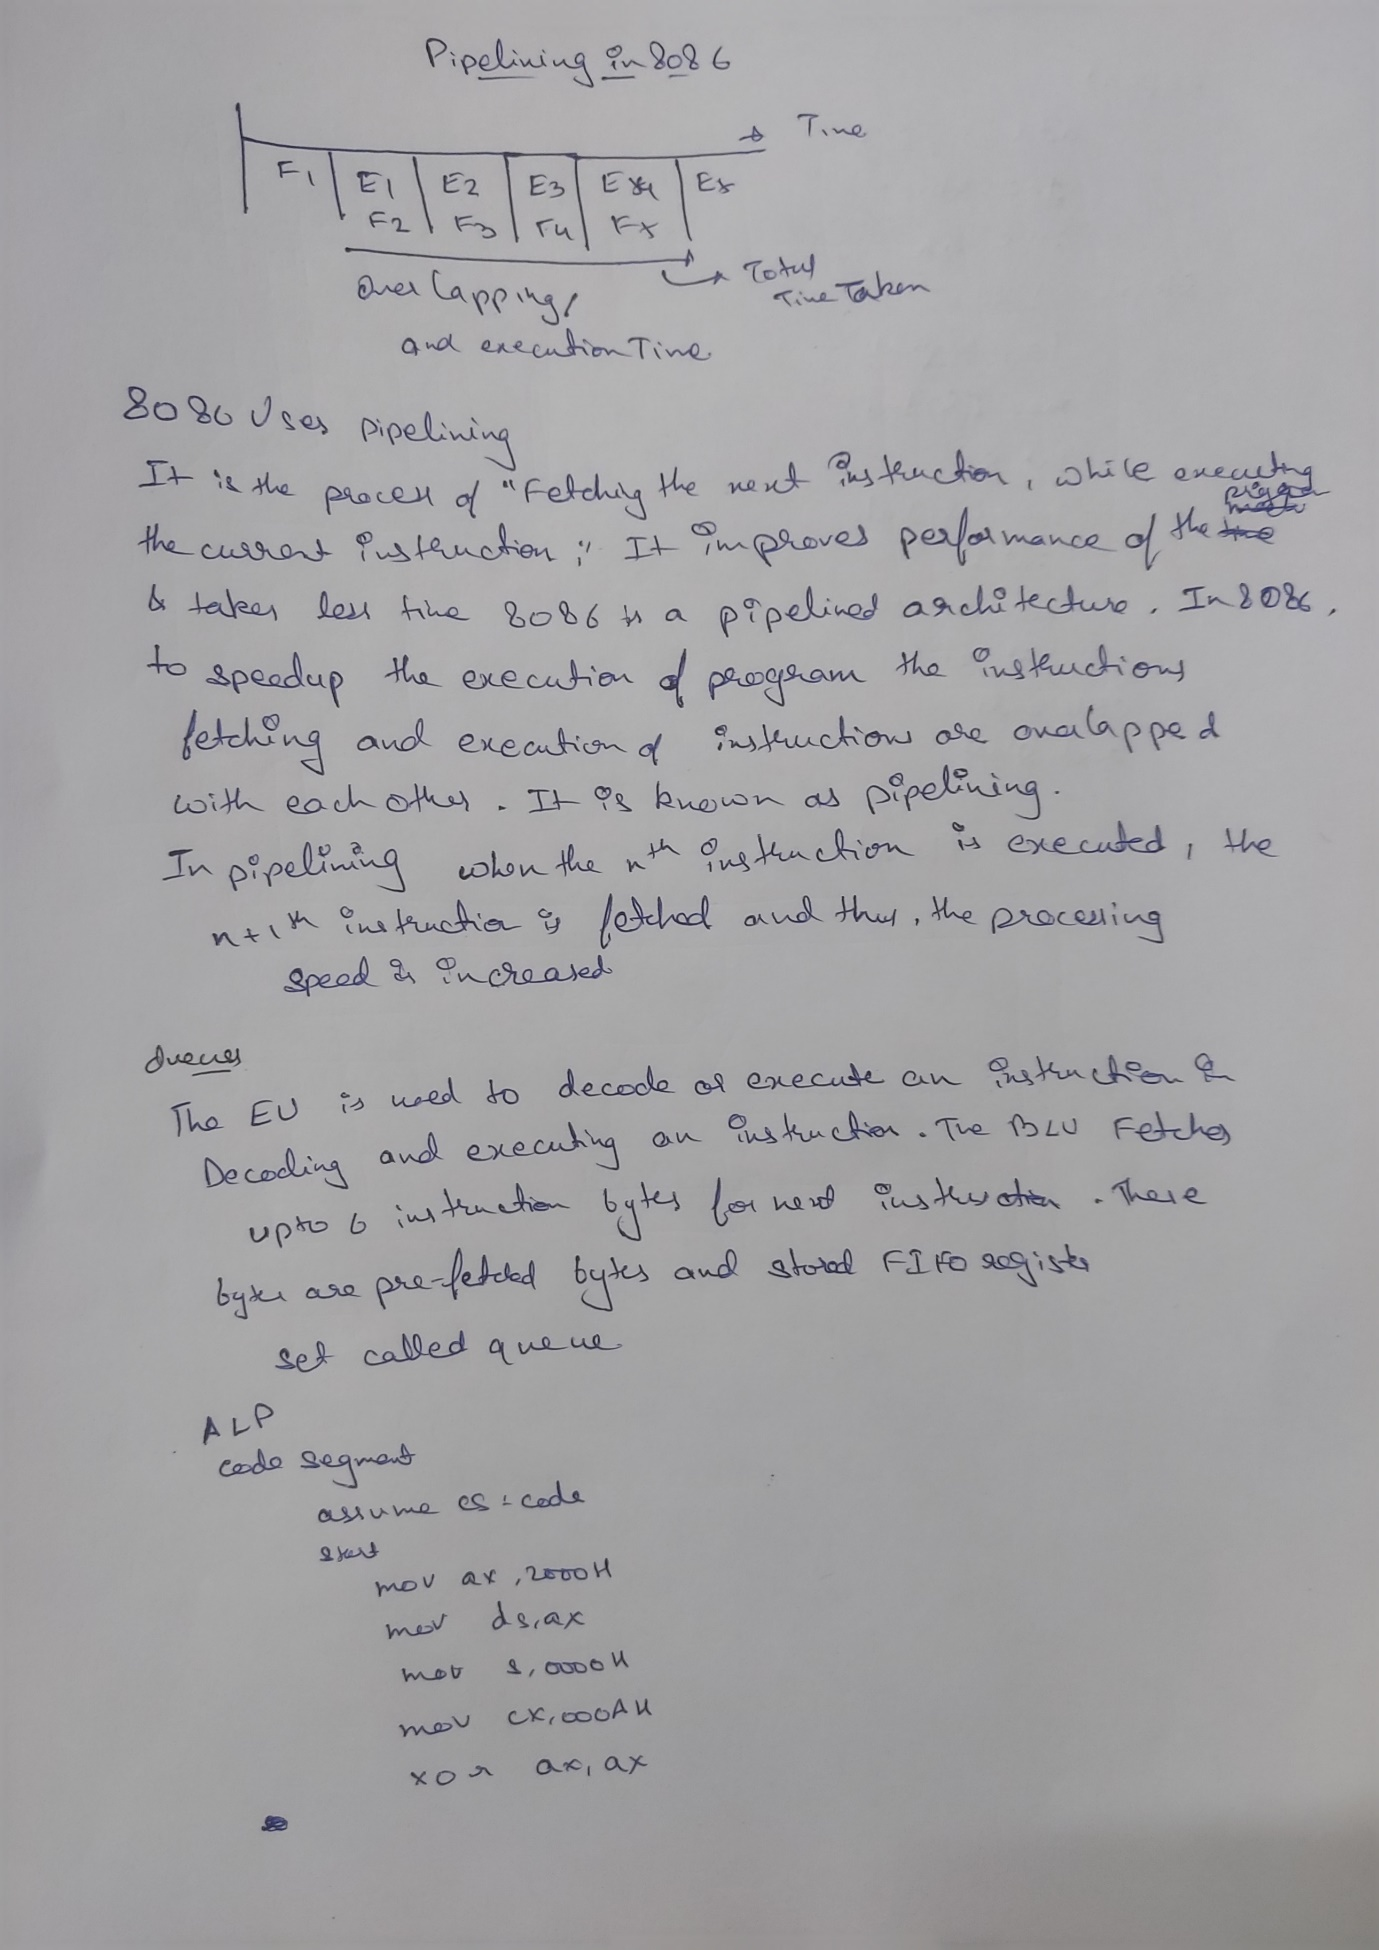 Pipelining in 8086
Time
F1 E1 E2 E3 E4 Ex
F2 F3 F4 Fx
Overlapping
Total
Time Taken
and execution Time
8086 Uses pipelining
It is the process of "Fetching the next instruction, while executing
the current instruction;" It improves performance of the
& takes less time 8086 is a pipelined architecture. In 8086,
to speedup the execution of program the instructions
fetching and execution of instructions are overlapped
with each other. It is known as pipelining.
In pipelining when the nth instruction is executed, the
n+1th instruction is fetched and thus, the processing
speed is increased
Queues
The EU is used to decode or execute an instruction in
Decoding and executing an instruction. The BIU Fetches
upto 6 instruction bytes for next instruction. These
bytes are pre-fetched bytes and stored FIFO register
set called queue
ALP
code segment
assume cs:code
start
mov ax,2000H
mov ds,ax
mov s,0000H
mov cx,000AH
xor ax,ax